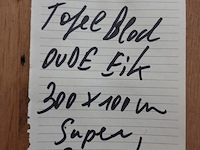 Tafel Blad
OUDE Eik
300 x 100 cm
Super